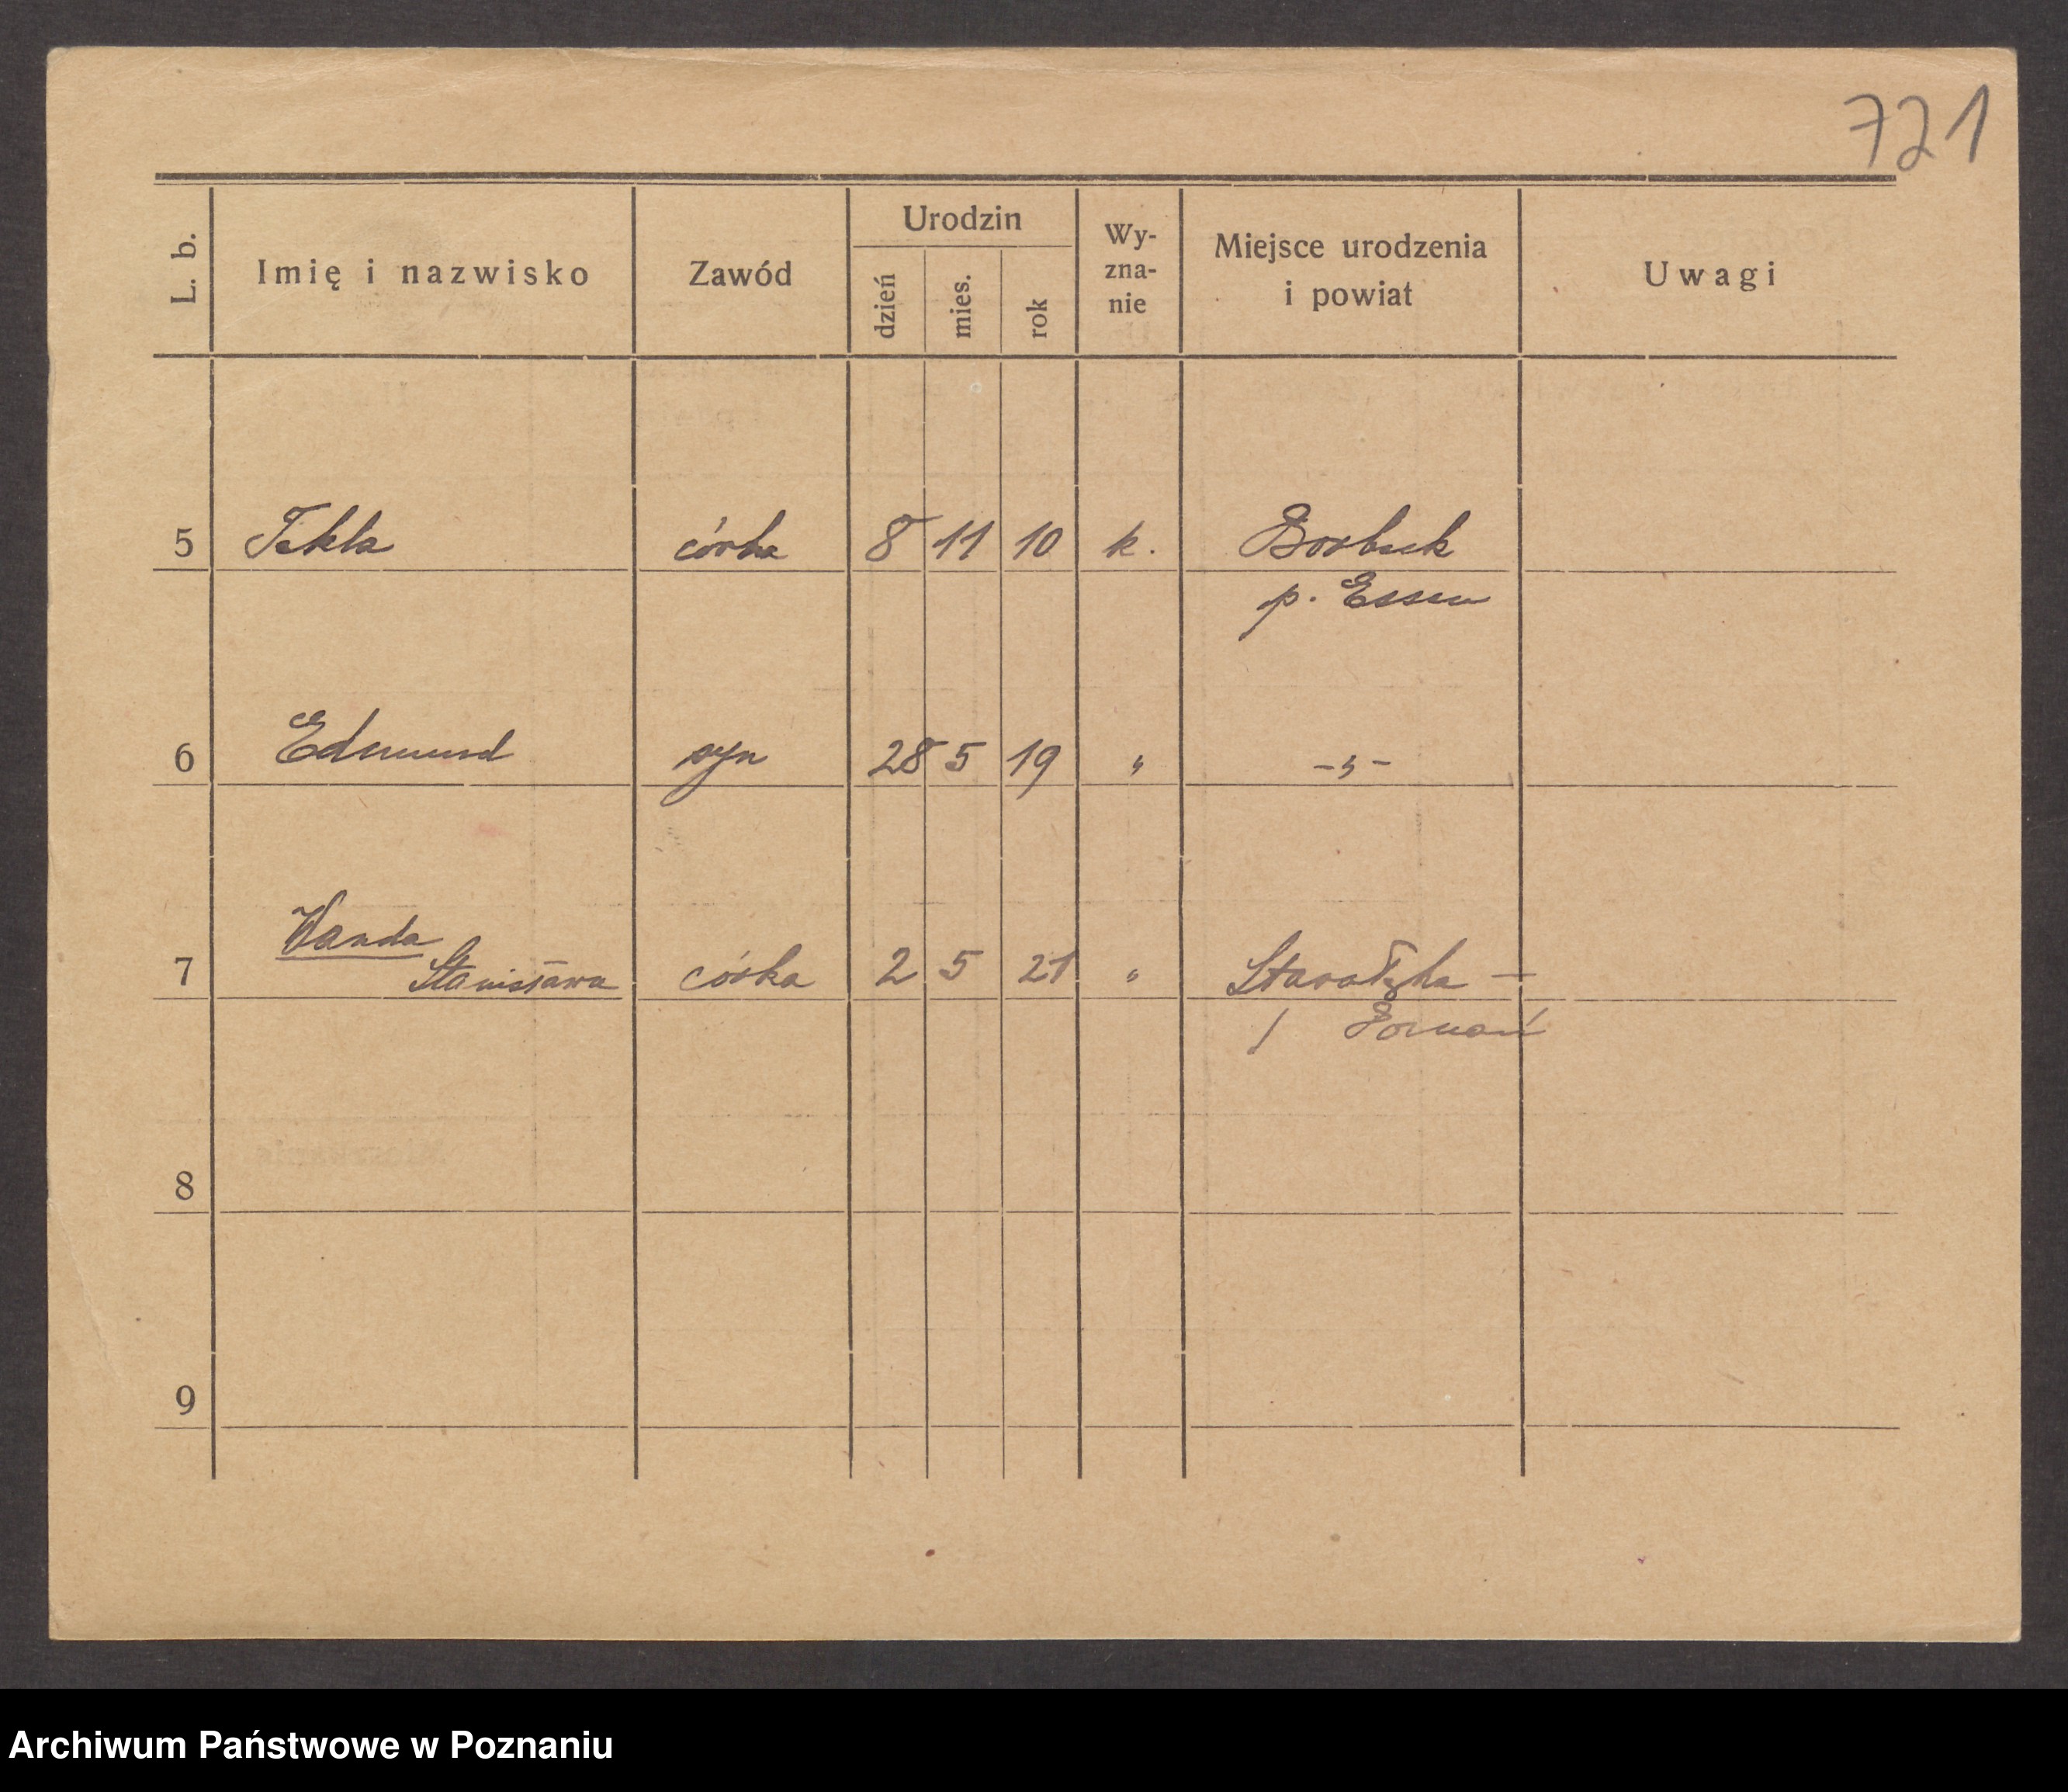 721
L. b.
Imię i nazwisko
Zawód
Urodzin
dzień
mies.
rok
Wy-
zna-
nie
Miejsce urodzenia
i powiat
Uwagi
5 Tekla córka 8 11 10 k. Borbeck
p. Essen
6 Edmund syn 28 5 19 " -"-
Wanda
7 Stanisława córka 2 5 21 " Starołęka —
/ Poznań
8
9
Archiwum Państwowe w Poznaniu